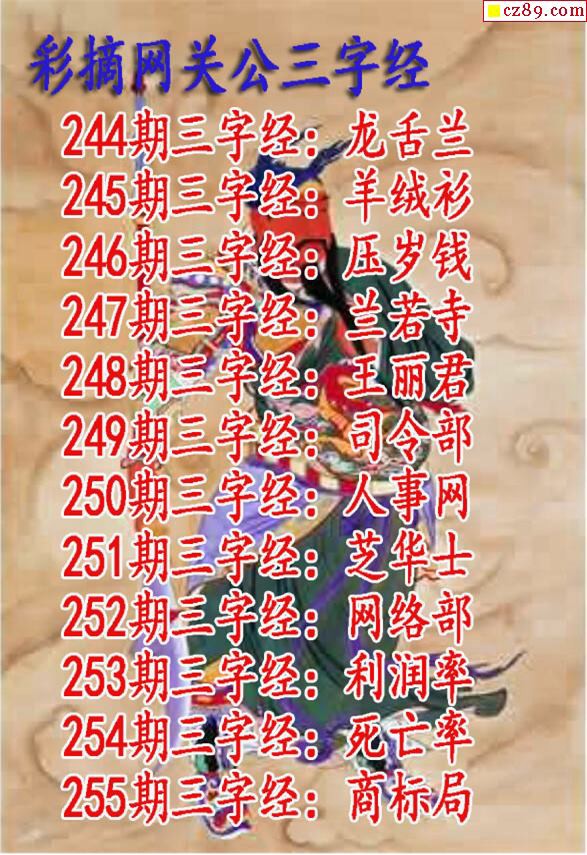 cz89.com
彩摘网关公三字经
244期三字经：龙舌兰
245期三字经：羊绒衫
246期三字经：压岁钱
247期三字经：兰若寺
248期三字经：王丽君
249期三字经：司令部
250期三字经：人事网
251期三字经：芝华士
252期三字经：网络部
253期三字经：利润率
254期三字经：死亡率
255期三字经：商标局